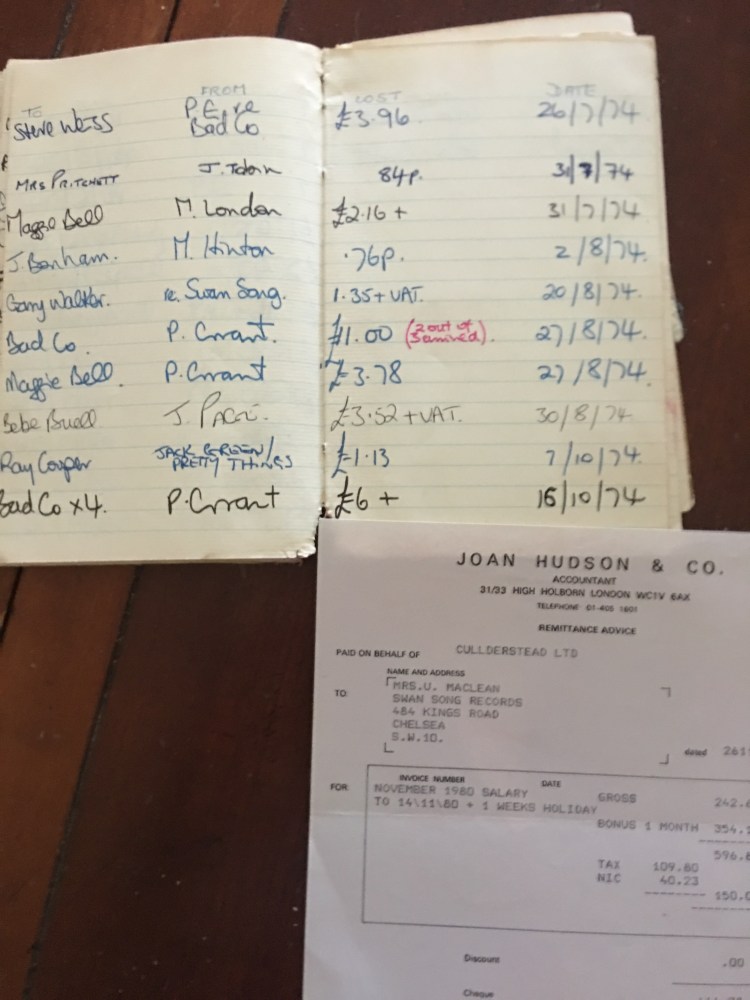 TO FROM COST DATE
Steve Weiss Bad Co £3.96 26/7/74
MRS PRITCHETT J. Tobin 84p. 31/7/74
Maggie Bell M. London £2.16 + 31/7/74
J. Bonham. M. Hinton .76p. 2/8/74.
Garry Walker. re. Swan Song. 1.35 + VAT. 20/8/74.
Bad Co. P. Grant. £1.00 (2 out of 3 arrived). 27/8/74.
Maggie Bell. P. Grant £3.78 27/8/74.
Bebe Buell J. PAGE. £3.52 + VAT. 30/8/74
Ray Cooper JACK GREEN/ PRETTY THINGS £1.13 7/10/74.
Bad Co x 4. P. Grant £6 + 16/10/74
JOAN HUDSON & CO.
ACCOUNTANT
31/33 HIGH HOLBORN LONDON WC1V 6AX
TELEPHONE 01-405 1601
REMITTANCE ADVICE
PAID ON BEHALF OF CULLDERSTEAD LTD
NAME AND ADDRESS
TO: MRS.U. MACLEAN
SWAN SONG RECORDS
484 KINGS ROAD
CHELSEA
S.W.10.
dated 261
INVOICE NUMBER DATE
FOR NOVEMBER 1980 SALARY GROSS 242.6
TO 14\11\80 + 1 WEEKS HOLIDAY
BONUS 1 MONTH 354.
596.8
TAX 109.80
NIC 40.23
150.0
Discount .00
Cheque